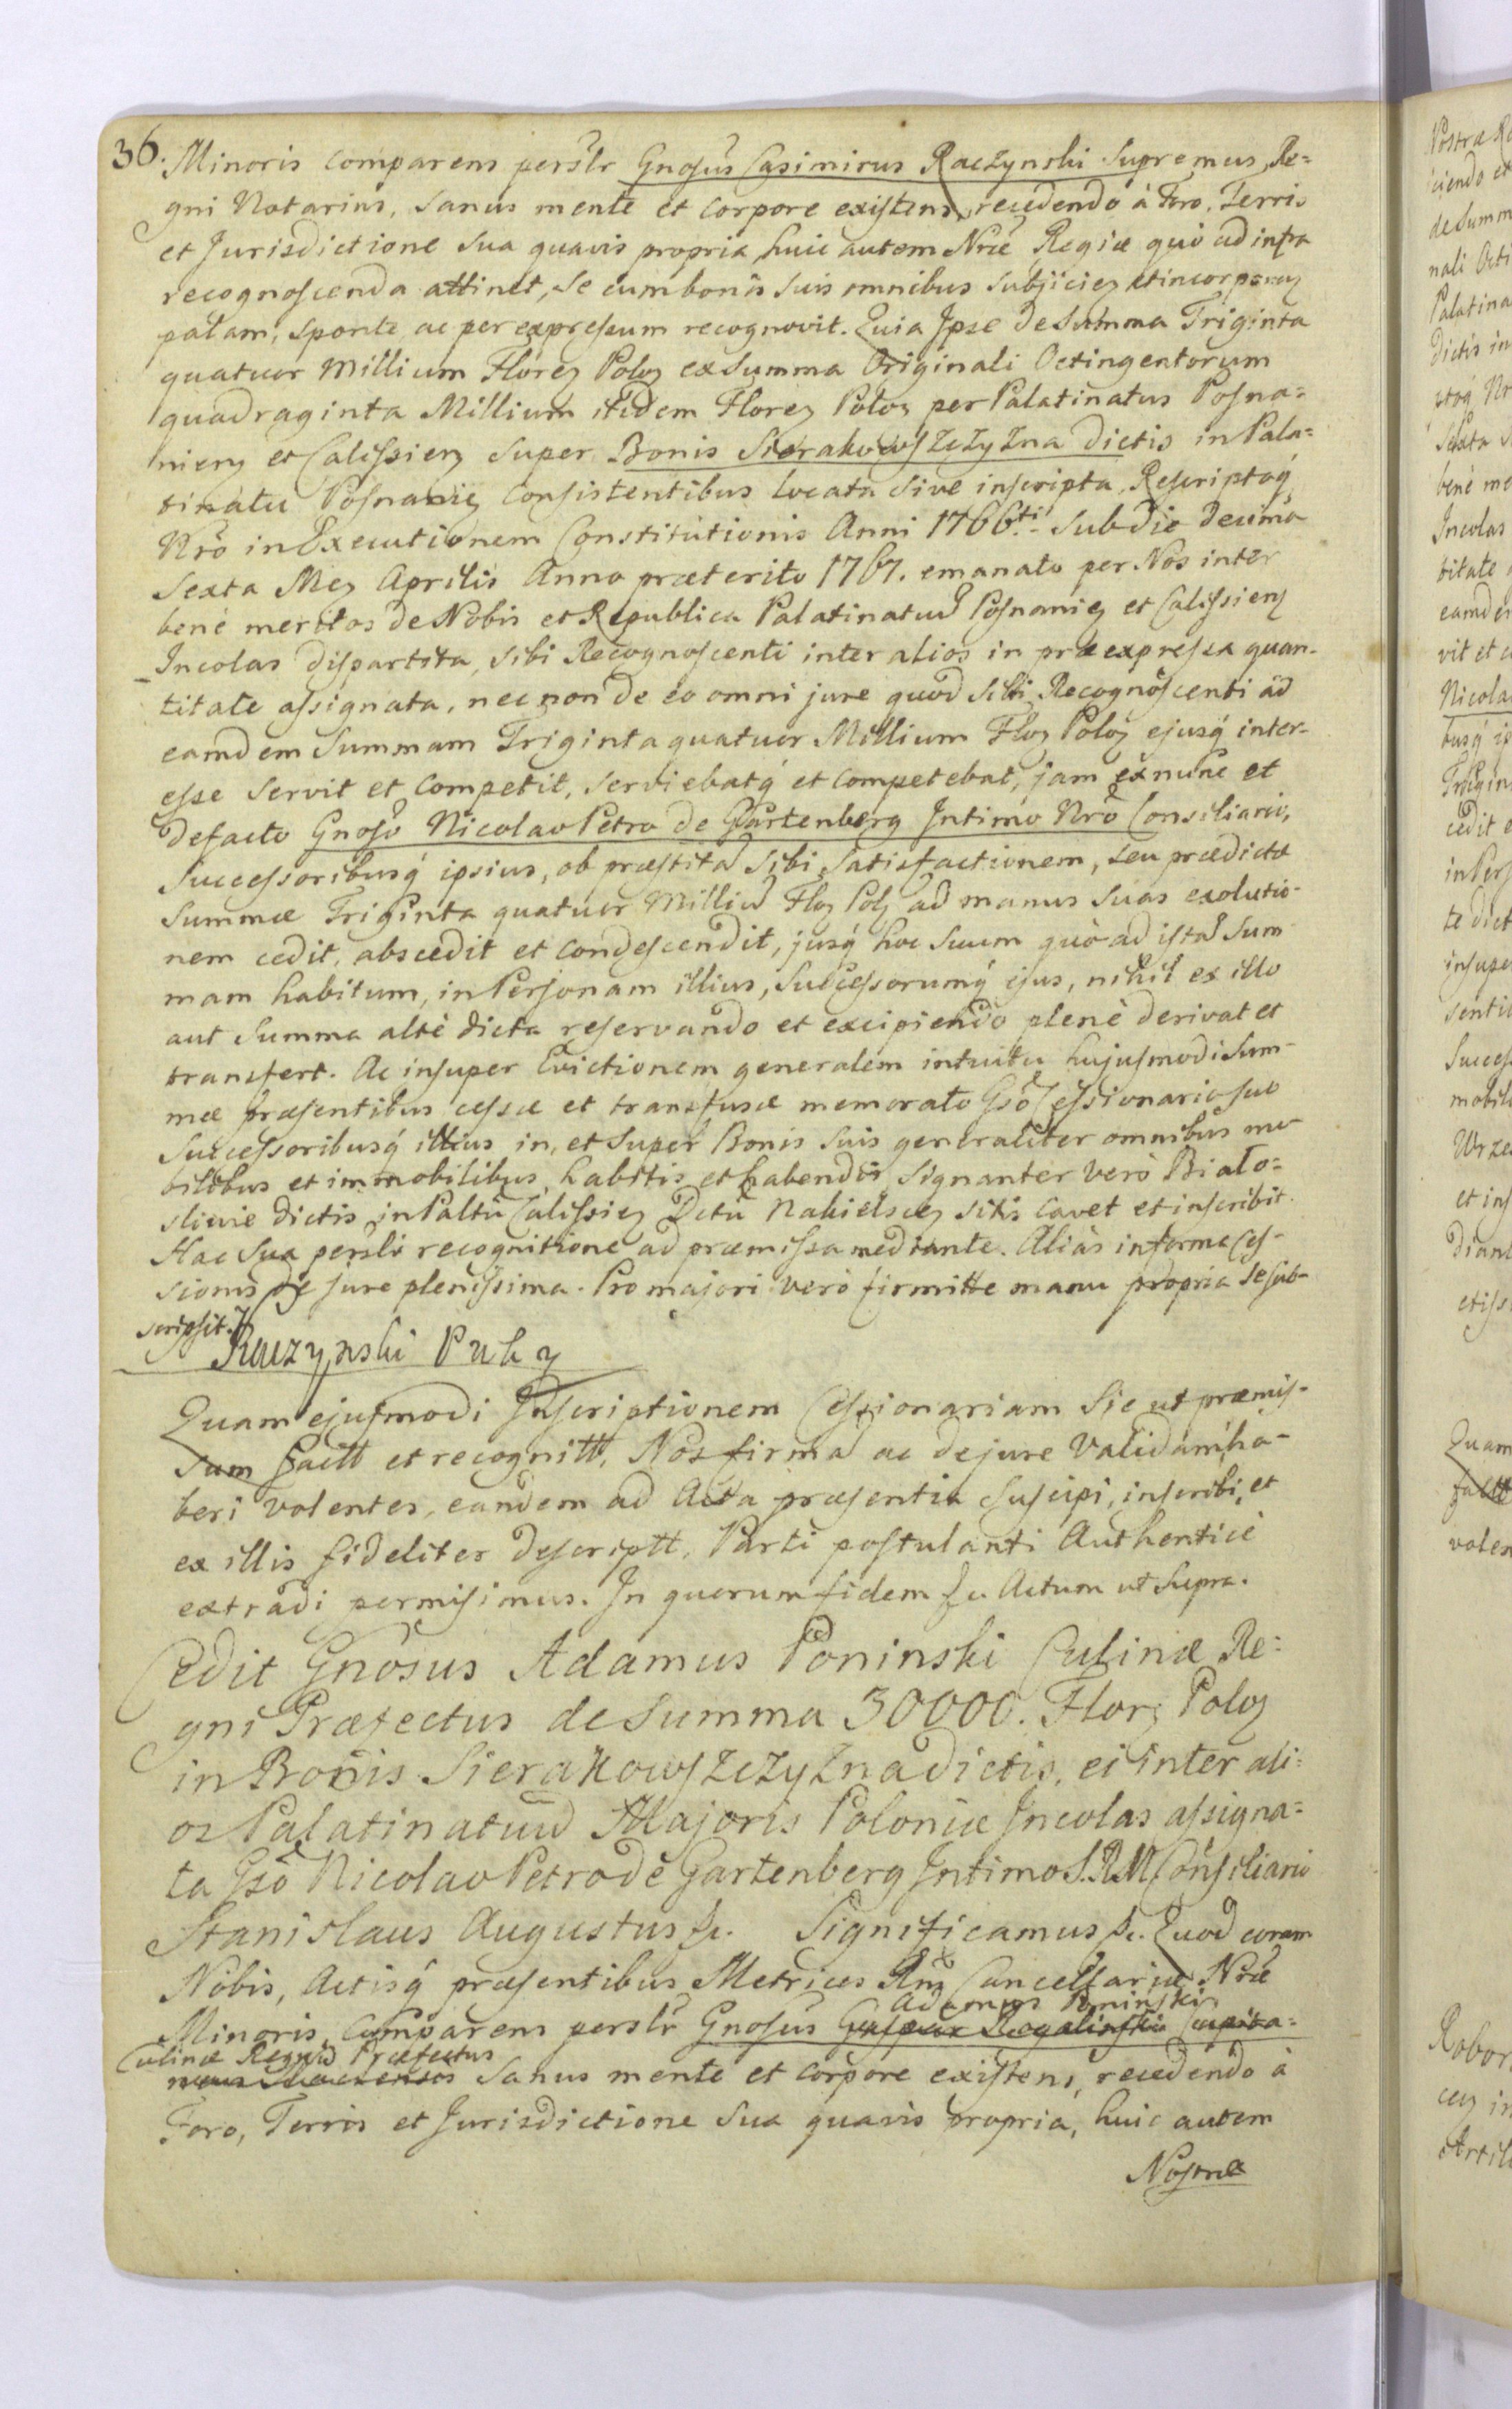 36. Minoris comparens perslr Gnosus Casimirus Raczynski Supremus Re=
gni Notarius, Sanus mente et corpore existens, recedendo à Foro, Terris
et Jurisdictione Sua quavis propria, huic autem Nrae Regiae quò ad infra
recognoscenda attinet, Se cum bonis Suis omnibus Subjiciez et incorporaz
palam, Sponte ac per expressum recognovit. Quia Ipse de Summa Triginta
quatuor Millium Florez Poloz ex Summa Originali Octingentorum
quadraginta Millium itidem Florez Poloz per Palatinatus Posna=
niez et Calissiez Super Bonis Sierakowszczyzna dictis in Pala=
tinatu Posnaniez consistentibus locata sive inscripta, Rescriptoq́
Nrõ in Executionem Constitutionis Anni 1766.ti Sub die decima
Sexta Mez Aprilis Anno praeterito 1767. emanato per Nos inter
benè meritos de Nobis et Republica Palatinatuum Posnaniez et Calissiez
Incolas dispartita, Sibi Recognoscenti inter alios in praeexpressa quan-
titate assignata, nec non de eo omni jure quod Sibi Recognoscenti ad
eamdem Summam Triginta quatuor Millium Floz Poloz ejusq́ inter-
esse Servit et Competit, Serviebatq́ et Competebat, jam ex nunc et
defacto Gnoso Nicolao Petro de Gartenberg Intimo Nrõ Consiliario,
Successoribusq́ ipsius, ob praestitã Sibi Satisfactionem, seu praedictae
Summae Triginta quatuor Milliũ Floz Polz ad manus Suas exolutio-
nem cedit, abscedit et condescendit, jusq́ hoc Suum quò ad istã Sum-
mam habitum, in Personam illius, Successorumq́ ejus, nihil ex illo
aut Summa altè dicta reservando et excipiendo plenè derivat et
transfert. Ac insuper Evictionem generalem intuitu hujusmodi Sum-
mae praesentibus cessae et transfusae memorato Gsõ Cessionario Suo
Successoribusq́ illius in, et Super Bonis Suis generaliter omnibus mo-
bilibus et immobilibus, habitis et habendis Signanter verò Biało=
sliwie dictis in Paltũ Calissiez Dctũ Nakielscez sitis cavet et inscribit.
Hac Sua perslr recognitione ad praemissa mediante. Aliàs in forma Ces-
sionis de jure plenissima. Pro majori verò firmitte manu propria Se sub-
scripsit.
Raczynski P W K
Quam ejusmodi Inscriptionem Cessionariam Sic ut praemis-
sum factt et recognitt, Nos firmã ac de jure Validam ha-
beri volentes, eandem ad Acta praesentia Suscipi, inscribi, et
ex illis fideliter descriptt, Parti postulanti Authenticè
extradi permisimus. In quorum fidem &c. Actum ut Supra.
Cedit Gnosus Adamus Poninski Culinae Re=
gni Praefectus de Summa 30000. Florz Poloz
in Bonis Sierakowszczyzna dictis, ei inter ali=
os Palatinatuũ Majoris Poloniae Incolas assigna=
ta Gsõ Nicolao Petro de Gartenberg Intimo S.R.M. Consiliario
Stanislaus Augustus &c. Significamus &c. Quod coram
Nobis, Actisq́ praesentibus Metrices Rnj Cancellariae Nrae
Adamus Poninski
Minoris, Comparens perslr Gnosus Gaspar Rogalinski Capita=
Culinae Regni Praefectus
neus Sanus mente et corpore existens, recedendo à
Foro, Terris et Jurisdictione Sua quavis propria, huic autem
Nostrae